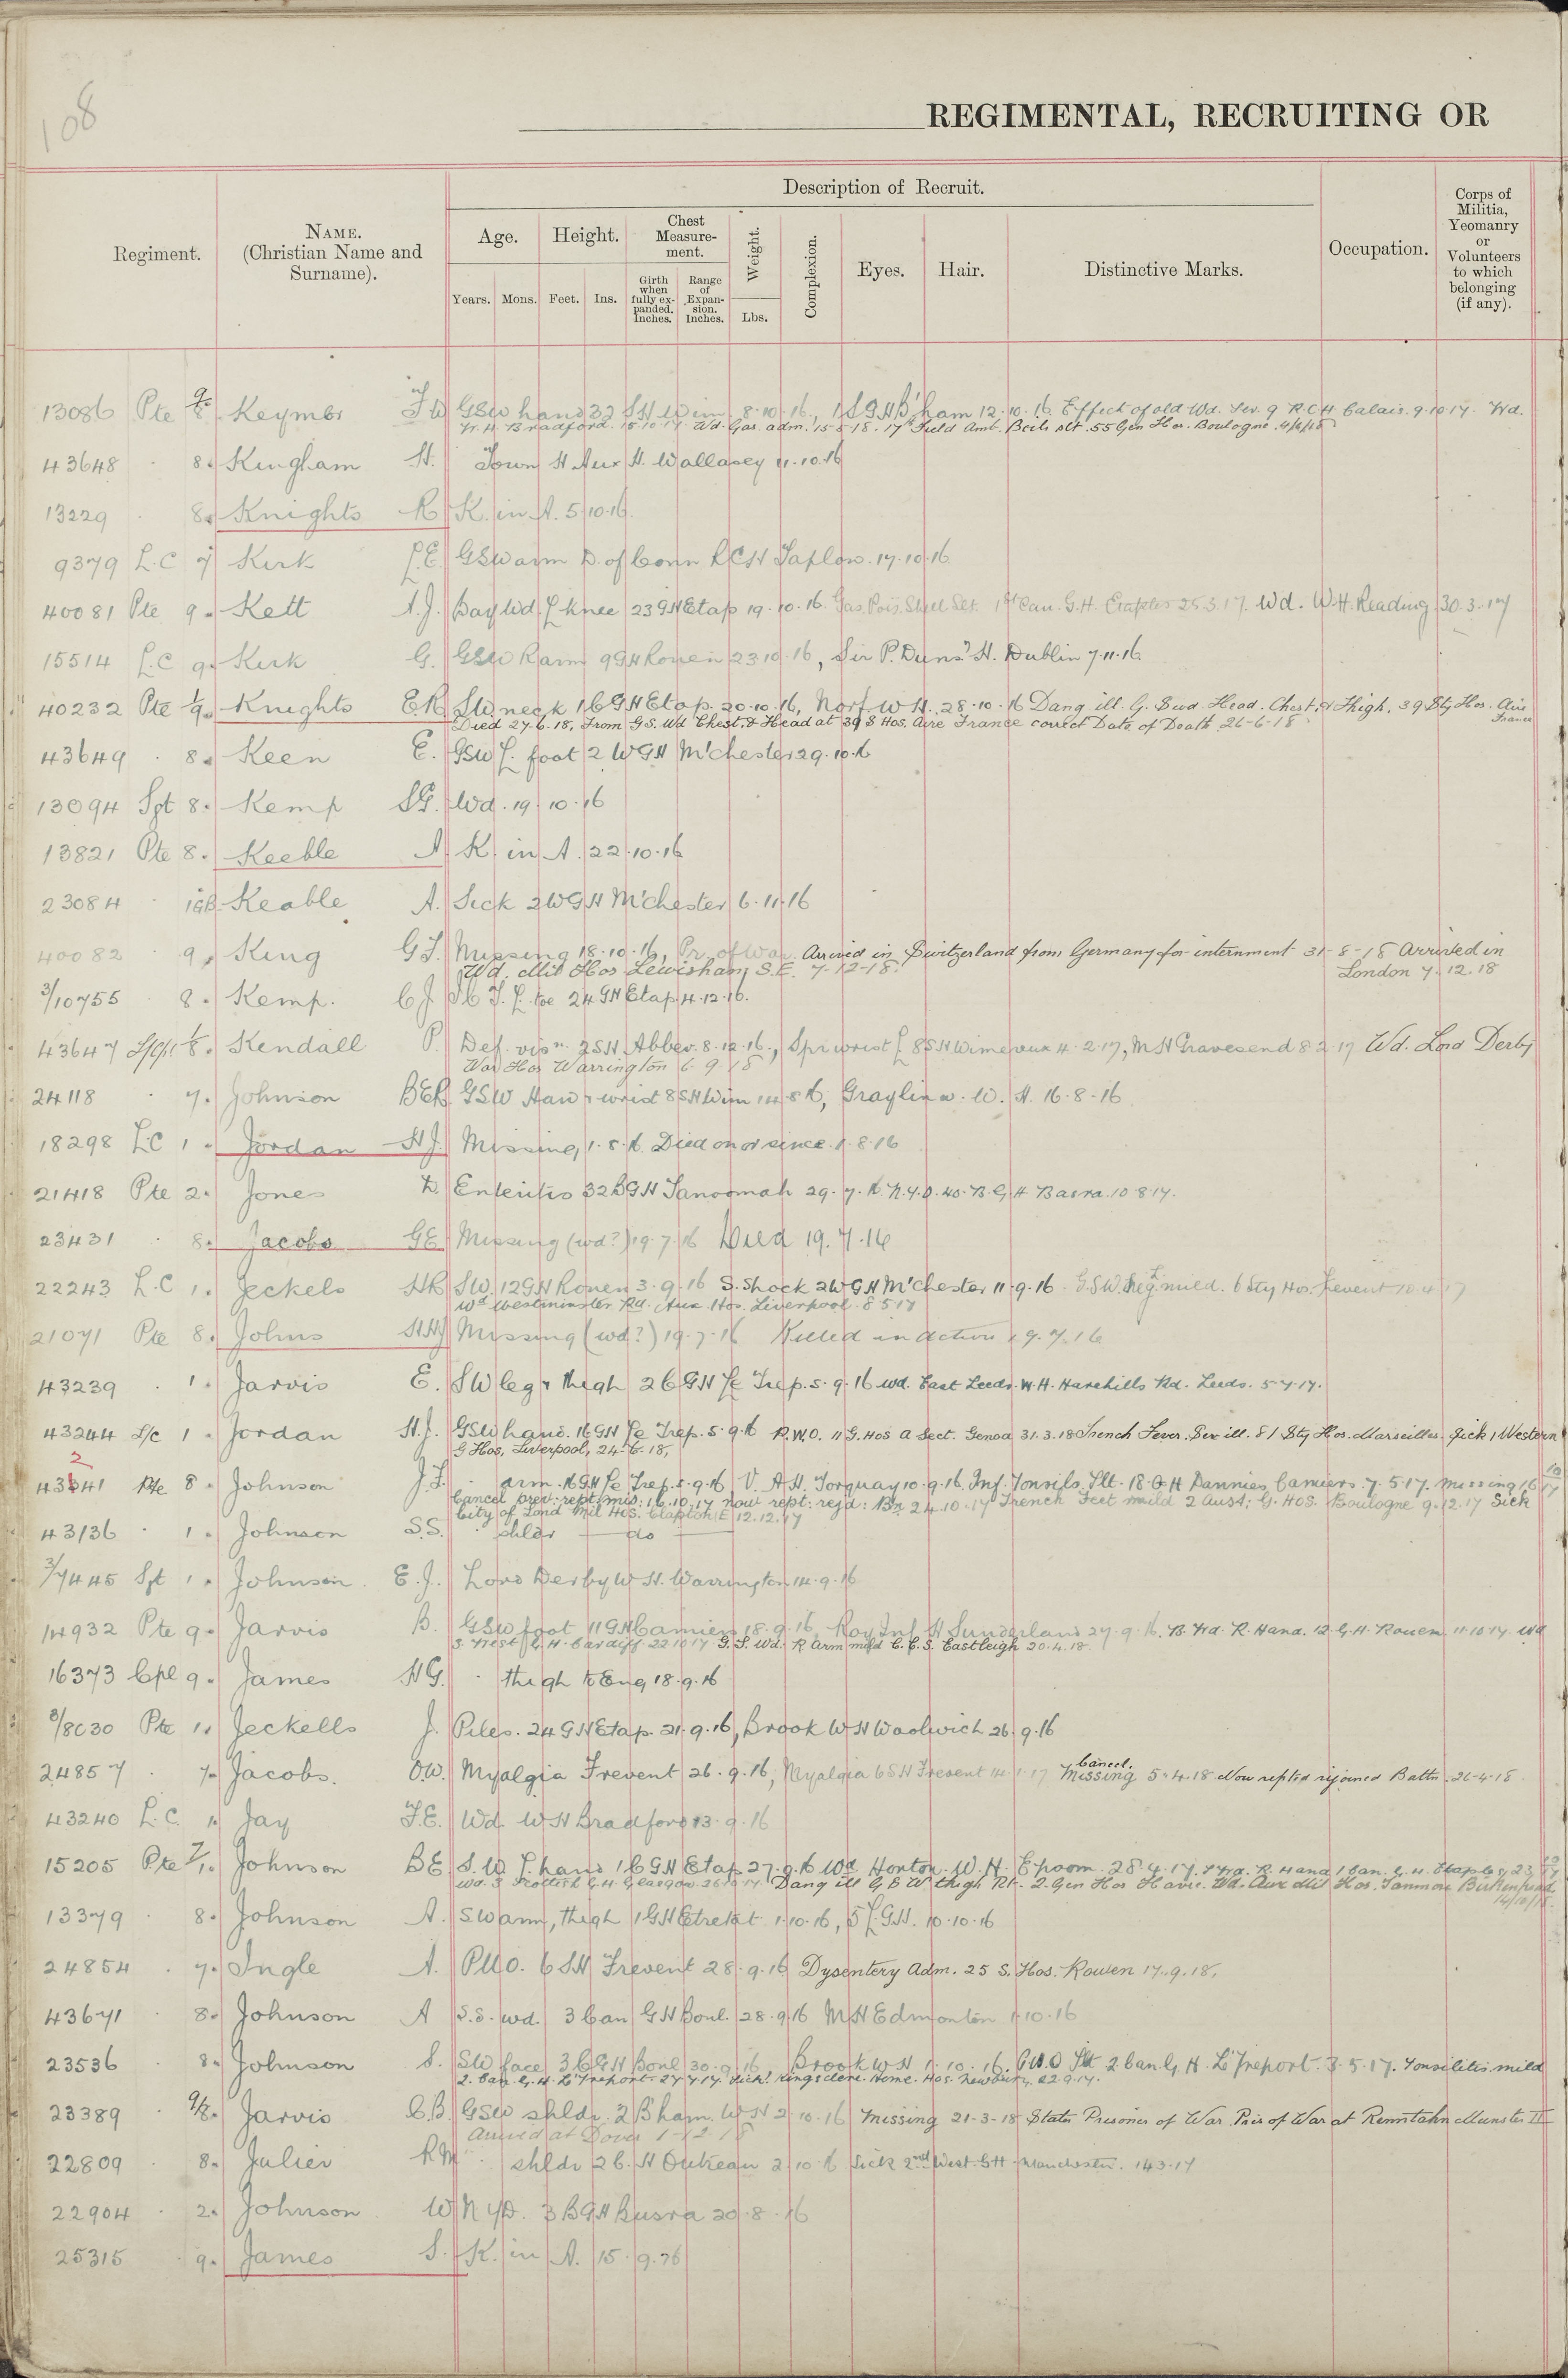 108
REGIMENTAL, RECRUITING OR
Description of Recruit.
Regiment.
NAME.
(Christian Name and
Surname).
Age.
Height.
Chest
Measure-
ment.
Weight.
Complexion.
Eyes.
Hair.
Distinctive Marks.
Occupation.
Corps of
Militia,
Yeomanry
or
Volunteers
to which
belonging
(if any).
Years.
Mons.
Feet.
Ins.
Girth
when
fully ex-
panded.
Inches.
Range
of
Expan-
sion.
Inches.
Lbs.
13086 Pte 9/8 Keymer F W GSW hand 32 SH Wim 8.10.16, 1 S G H B'ham 12.10.16 Effect of old Wd. Sev. 9 R.C.H. Calais. 9.10.17. Wd.
W. H. Bradford. 15.10.17 Wd. Gas. adm. 15.5.18. 17th Field Amb. Boils slt. 55 Gen Hos. Boulogne. 4/6/18
43648 8. Kingham H. Town H Aux H. Wallasey 11.10.16
13229 8. Knights R K. in A. 5.10.16.
9379 L.C 7 Kirk F.E. GSW arm D. of Conn R C H Taplow. 17.10.16
40081 Pte 9. Kett A.J. Bay Wd L knee 23 GH Etap 19.10.16 Gas. Pois. Shell Slt. 1st Can. G.H. Etaples 25.3.17. Wd. W.H. Reading 30.3.17
15514 L.C 9. Kirk G. GSW R arm 9 GH Rouen 23.10.16, Sir P. Duns' H. Dublin 7.11.16.
40232 Pte 1/9. Knights E.R. SW neck 16 GH Etap. 20.10.16, Norf W H. 28.10.16 Dang ill. G. S wd. Head. Chest, & Thigh, 39 Sty Hos. Aire
France
Died 27.6.18, From G S. Wd Chest, & Head at 39 S Hos. Aire France correct Date of Death 26-6-18
43649 8. Keen E. GSW L. foot 2 W G H M'chester 29.10.16
13094 Sgt 8. Kemp S G. Wd. 19.10.16
13821 Pte 8. Keeble A K. in A. 22.10.16
23084 1GB Keable A. Sick 2 W G H M'chester 6.11.16
40082 9. King G F. Missing 18.10.16, Pr. of War. Arrived in Switzerland from Germany for internment 31-8-18 Arrived in
London 7.12.18
Wd. Mil Hos Lewisham S.E. 7-12-18.
3/10755 8. Kemp. C J. T. L. toe 24 GH Etap. 4.12.16.
43647 1/8. Kendall P. Def. visn. 2 S H Abbev. 8.12.16., Spr wrist L 8 S H Wimereux 4.2.17, M H Gravesend 8.2.17 Wd. Lord Derby
War Hos Warrington 6 9 18
24118 7. Johnson BER GSW Hand & wrist 8 S H Wim 14.8.16, Graylin w. W. H. 16.8.16
18298 L.C 1. Jordan H J. Missing 1.8.16. Died on or since 1.8.16
21418 Pte 2. Jones D. Enteritis 32 B G H Tanoomah 29.7.16 N.Y.D. 40. B. G. H Basra. 10.8.17.
23431 8. Jacobs GE Missing (wd?) 19.7.16 Died 19.7.16
22243 L.C 1. Jeckels HR SW. 12 G H Rouen 3.9.16 S. Shock 2 W G H M'chester 11.9.16 G.S.W. L leg mild. 6 Sty Hos. Frevent 10.4.17
Wd Westminster Rd. Aux. Hos. Liverpool. 8 5 17
21071 Pte 8. Johns H.H.J Missing (wd?) 19.7.16 Killed in action 19.7.16
43239 1. Jarvis E. SW leg & thigh 26 G H Le Trep. 5.9.16 wd. East Leeds. W. H. Harehills Rd. Leeds. 5.7.17.
43244 L/c 1. Jordan H.J. GSW hand. 16 G H Le Trep. 5.9.16 P.W.O. 11 G. Hos a Sect. Genoa 31.3.18 Trench Fever. Sev ill. 81 Sty Hos. Marseilles. Sick 1 Western
G Hos, Liverpool, 24.6.18,
43241 Pte 8. Johnson J.F. arm. 16 G H Le Trep. 5.9.16, V. A H. Torquay 10.9.16 Inf. Tonsils. Slt. 18 G H Dannes Camiers. 7.5.17. Missing 16/10/17
Cancel prev. rept. mis. 16.10.17 now rept. rejd. Bn 24.10.17 Trench Feet mild 2 Aust. G. Hos. Boulogne 9.12.17 Sick
City of Lond Mil Hos. Clapton E 12.12.17
43136 1. Johnson S.S. shldr do
3/7445 Sgt 1. Johnson E.J. Lord Derby W H. Warrington 14.9.16
14932 Pte 9. Jarvis B. GSW foot 11 G H Camiers 18.9.16, Roy Inf H Sunderland 27.9.16. B. Wd. R. Hand. 12. G. H. Rouen. 11.10.17 Wd
3. West G. H. Cardiff 22.10.17 G. S. Wd. R Arm mild C.C.S. Eastleigh 20.4.18.
16373 Cpl 9. James H G. thigh to Eng 18.9.16
3/8030 Pte 1. Jeckells J. Piles. 24 G H Etap. 21.9.16, Brook W H Woolwich 26.9.16
24857 7. Jacobs. O.W. Myalgia Frevent 26.9.16, Myalgia 6 S H Frevent 14.1.17 Cancel.
Missing 5.4.18 Now repted rejoined Battn. 26-4-18
43240 L.C. 1. Jay F.E. Wd. W H Bradford 13.9.16
15205 Pte 7/1. Johnson B E. S.W. L. hand 16 G H Etap 27.9.16 Wd. Horton. W. H. Epsom. 28.4.17. S Wd. R. Hand 1 Can. G. H. Etaples 23
Wd. 3 Scottish G. H. Glasgow. 26. Dang ill G S W thigh Rt. 2. Gen Hos Havre. Wd. Aux Mil Hos. Tranmere Birkenhead
13379 8. Johnson A. SW arm, thigh 1 G H Etretat 1.10.16, 5 L. G.H. 10.10.16
24854 7. Ingle A. PUO. 6 S H Frevent 28.9.16 Dysentery Adm. 25 S. Hos. Rouen 17.9.18.
43671 8. Johnson A S.S. wd. 3 Can G H Boul. 28.9.16 M H Edmonton 1.10.16
23536 8. Johnson S. SW face 3 C G H Boul 30.9.16, Brook W H 1.10.16. P.U.O Slt 2 Can G. H. Le Treport. 3.5.17. Tonsilitis mild
2. Can. G. H. Le Treport. 27.7.17. Sick. Kingsclere. Home. Hos. Newbury. 22.9.17.
23389 9/8. Jarvis C.B. GSW shldr. 2 B'ham W H 2.10.16 Missing 21-3-18 States Prisoner of War. Pris of War at Rennbahn Munster II
Arrived at Dover 1-12-18
22809 8. Julier R M shldr 26. H Outreau 2.10.16 Sick 2nd West. G H. Manchester. 14.3.17
22904 2. Johnson W N Y D. 3 B G H Busra 20.8.16
25315 9. James S. K. in A. 15.9.16